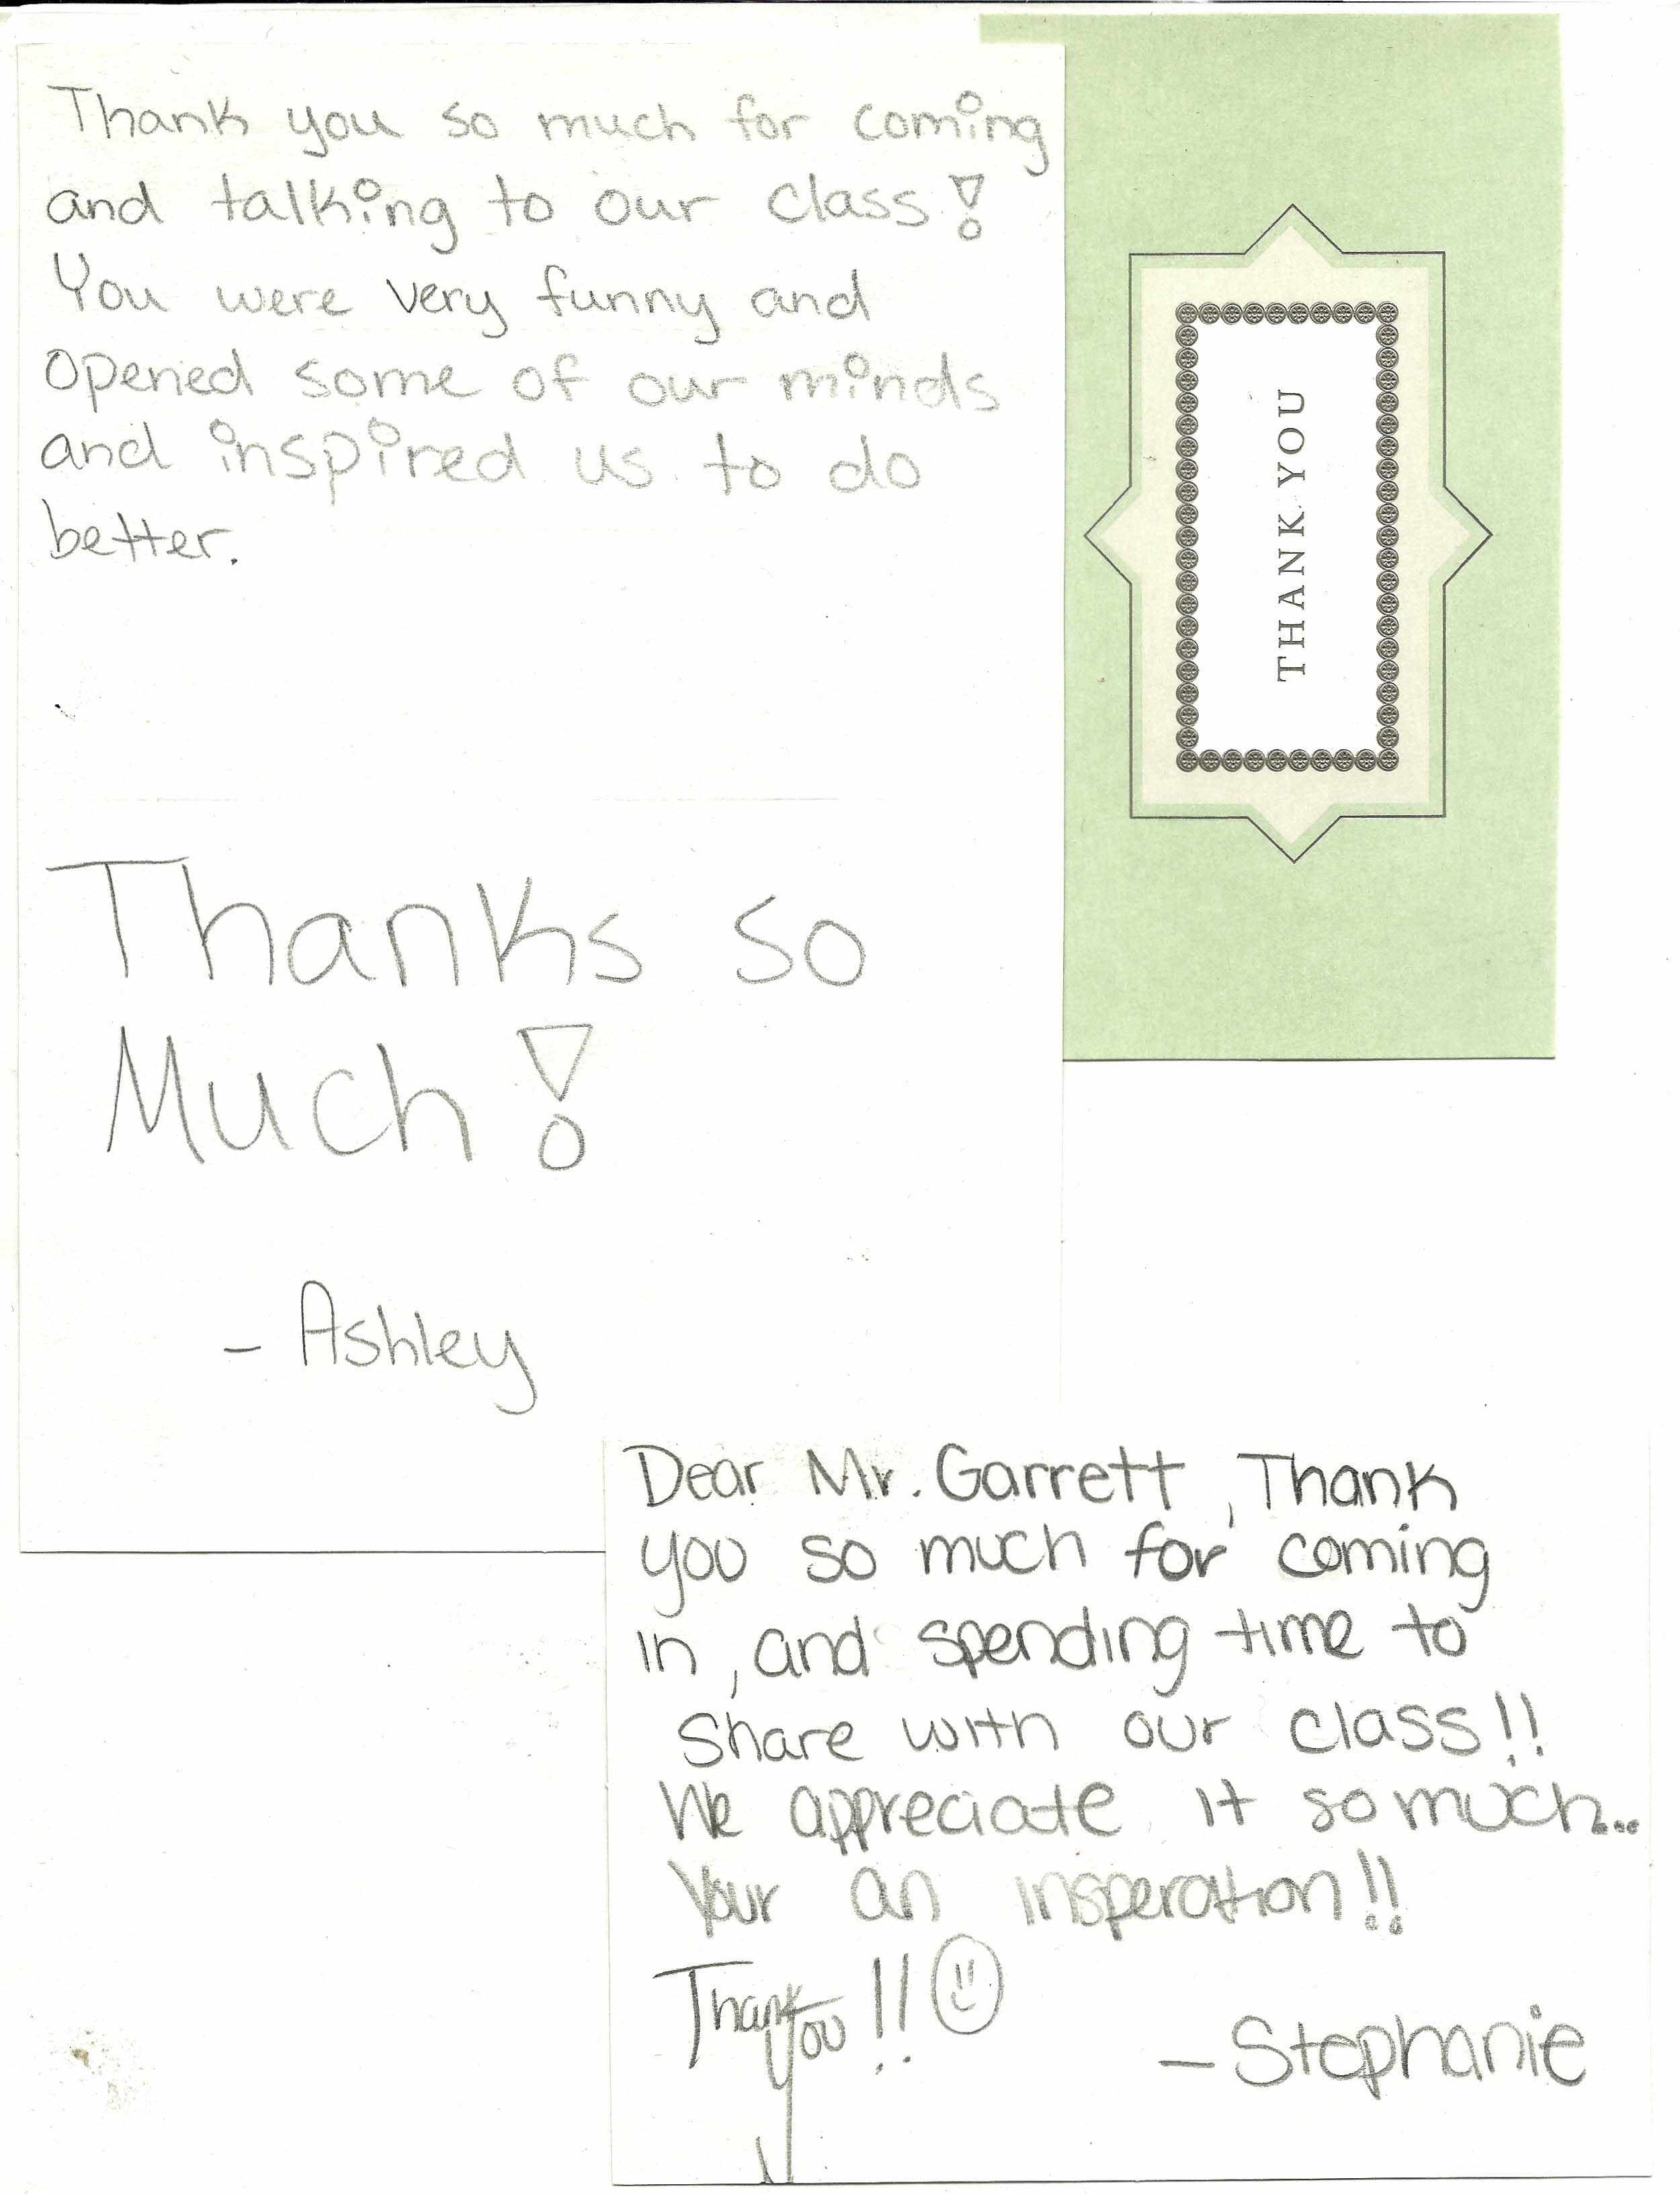 Thank you so much for coming
and talking to our class!
You were very funny and
opened some of our minds
and inspired us to do
better.
Thanks so
Much!
- Ashley
THANK YOU
Dear Mr. Garrett, Thank
you so much for coming
in, and spending time to
share with our class!!
We appreciate it so much...
Your an insperation!!
Thank you!!
- Stephanie